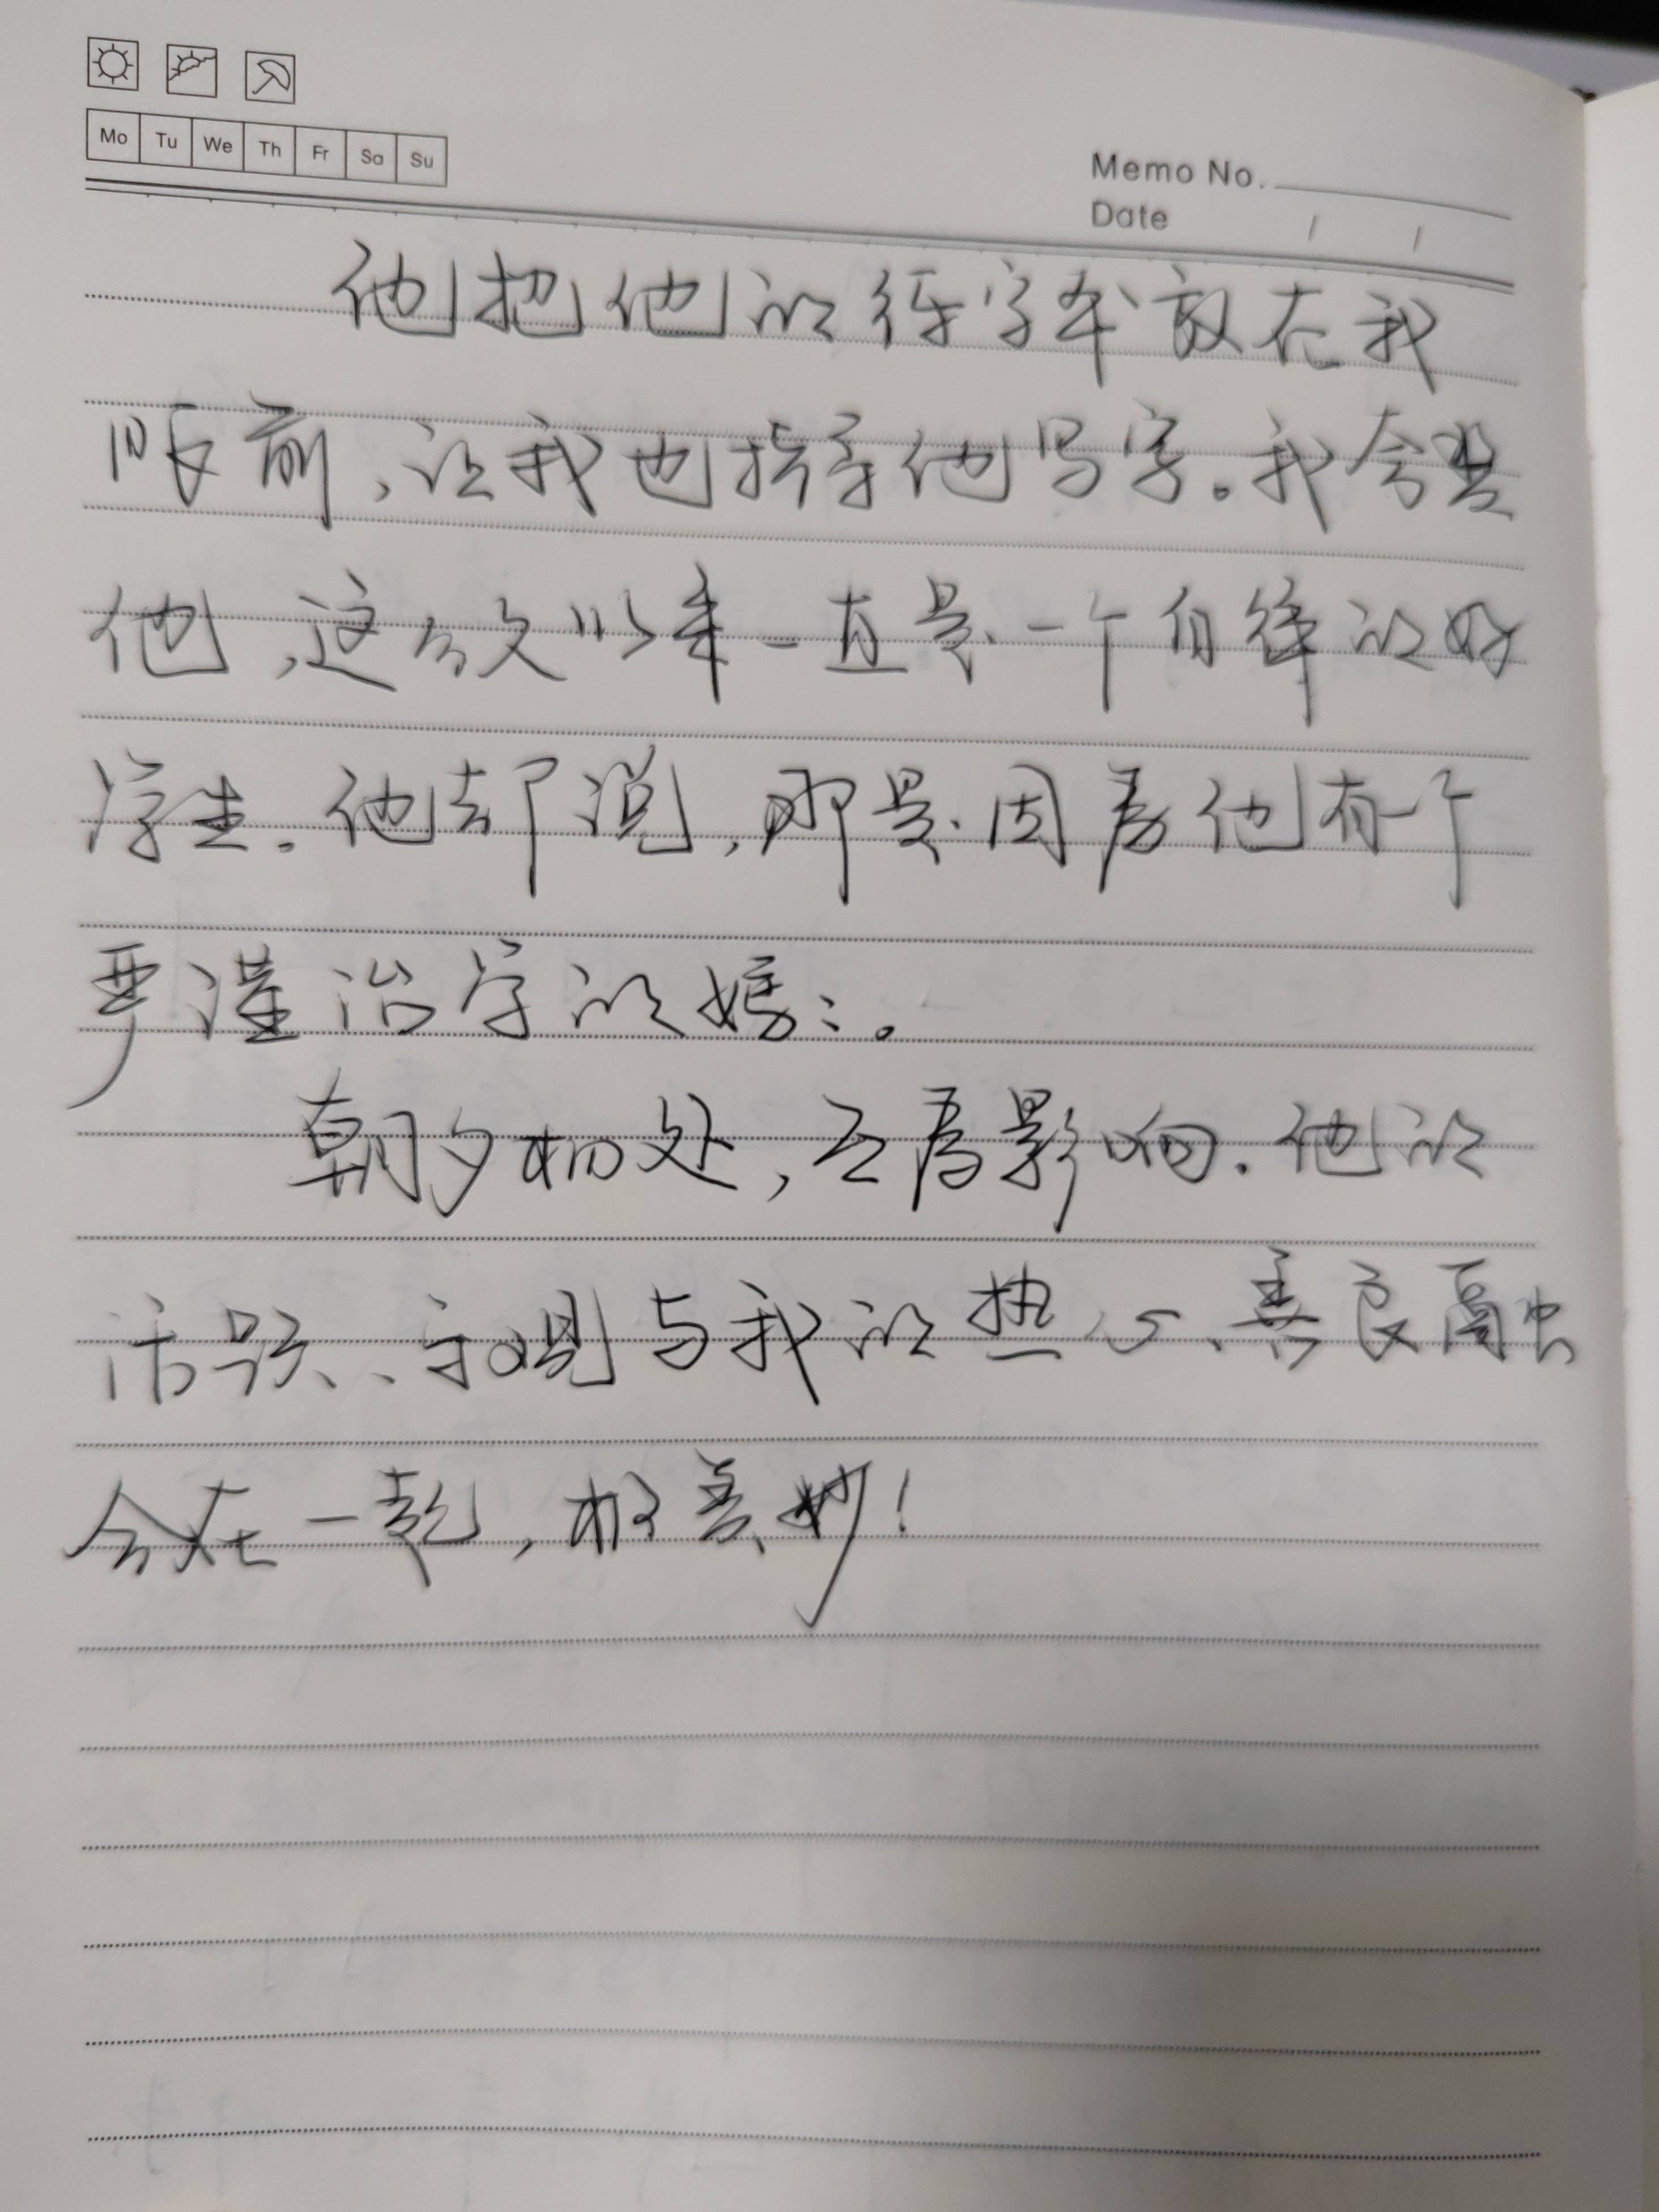 Mo Tu We Th Fr Sa Su
Memo No.
Date / /
他把他的练字本放在我
眼前,让我也指导他写字。我夸赞
他,这么久以来一直是一个自律的好
学生。他却说,那是因为他有一个
严谨治学的妈妈。
朝夕相处,互为影响.他的
活跃、乐观与我的热心、善良融
合在一起,极美妙!